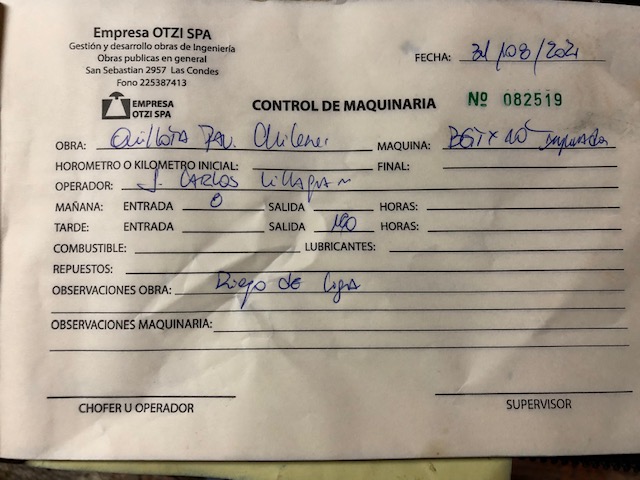 Empresa OTZI SPA
Gestión y desarrollo obras de Ingeniería
Obras publicas en general
San Sebastian 2957 Las Condes
Fono 225387413
FECHA: 31/08/2021
EMPRESA
OTZI SPA
CONTROL DE MAQUINARIA Nº 082519
OBRA: MAQUINA:
HOROMETRO O KILOMETRO INICIAL: FINAL:
OPERADOR: J. Carlos
MAÑANA: ENTRADA 8 SALIDA HORAS:
TARDE: ENTRADA SALIDA HORAS:
COMBUSTIBLE: LUBRICANTES:
REPUESTOS:
OBSERVACIONES OBRA: Riego de
OBSERVACIONES MAQUINARIA:
CHOFER U OPERADOR SUPERVISOR